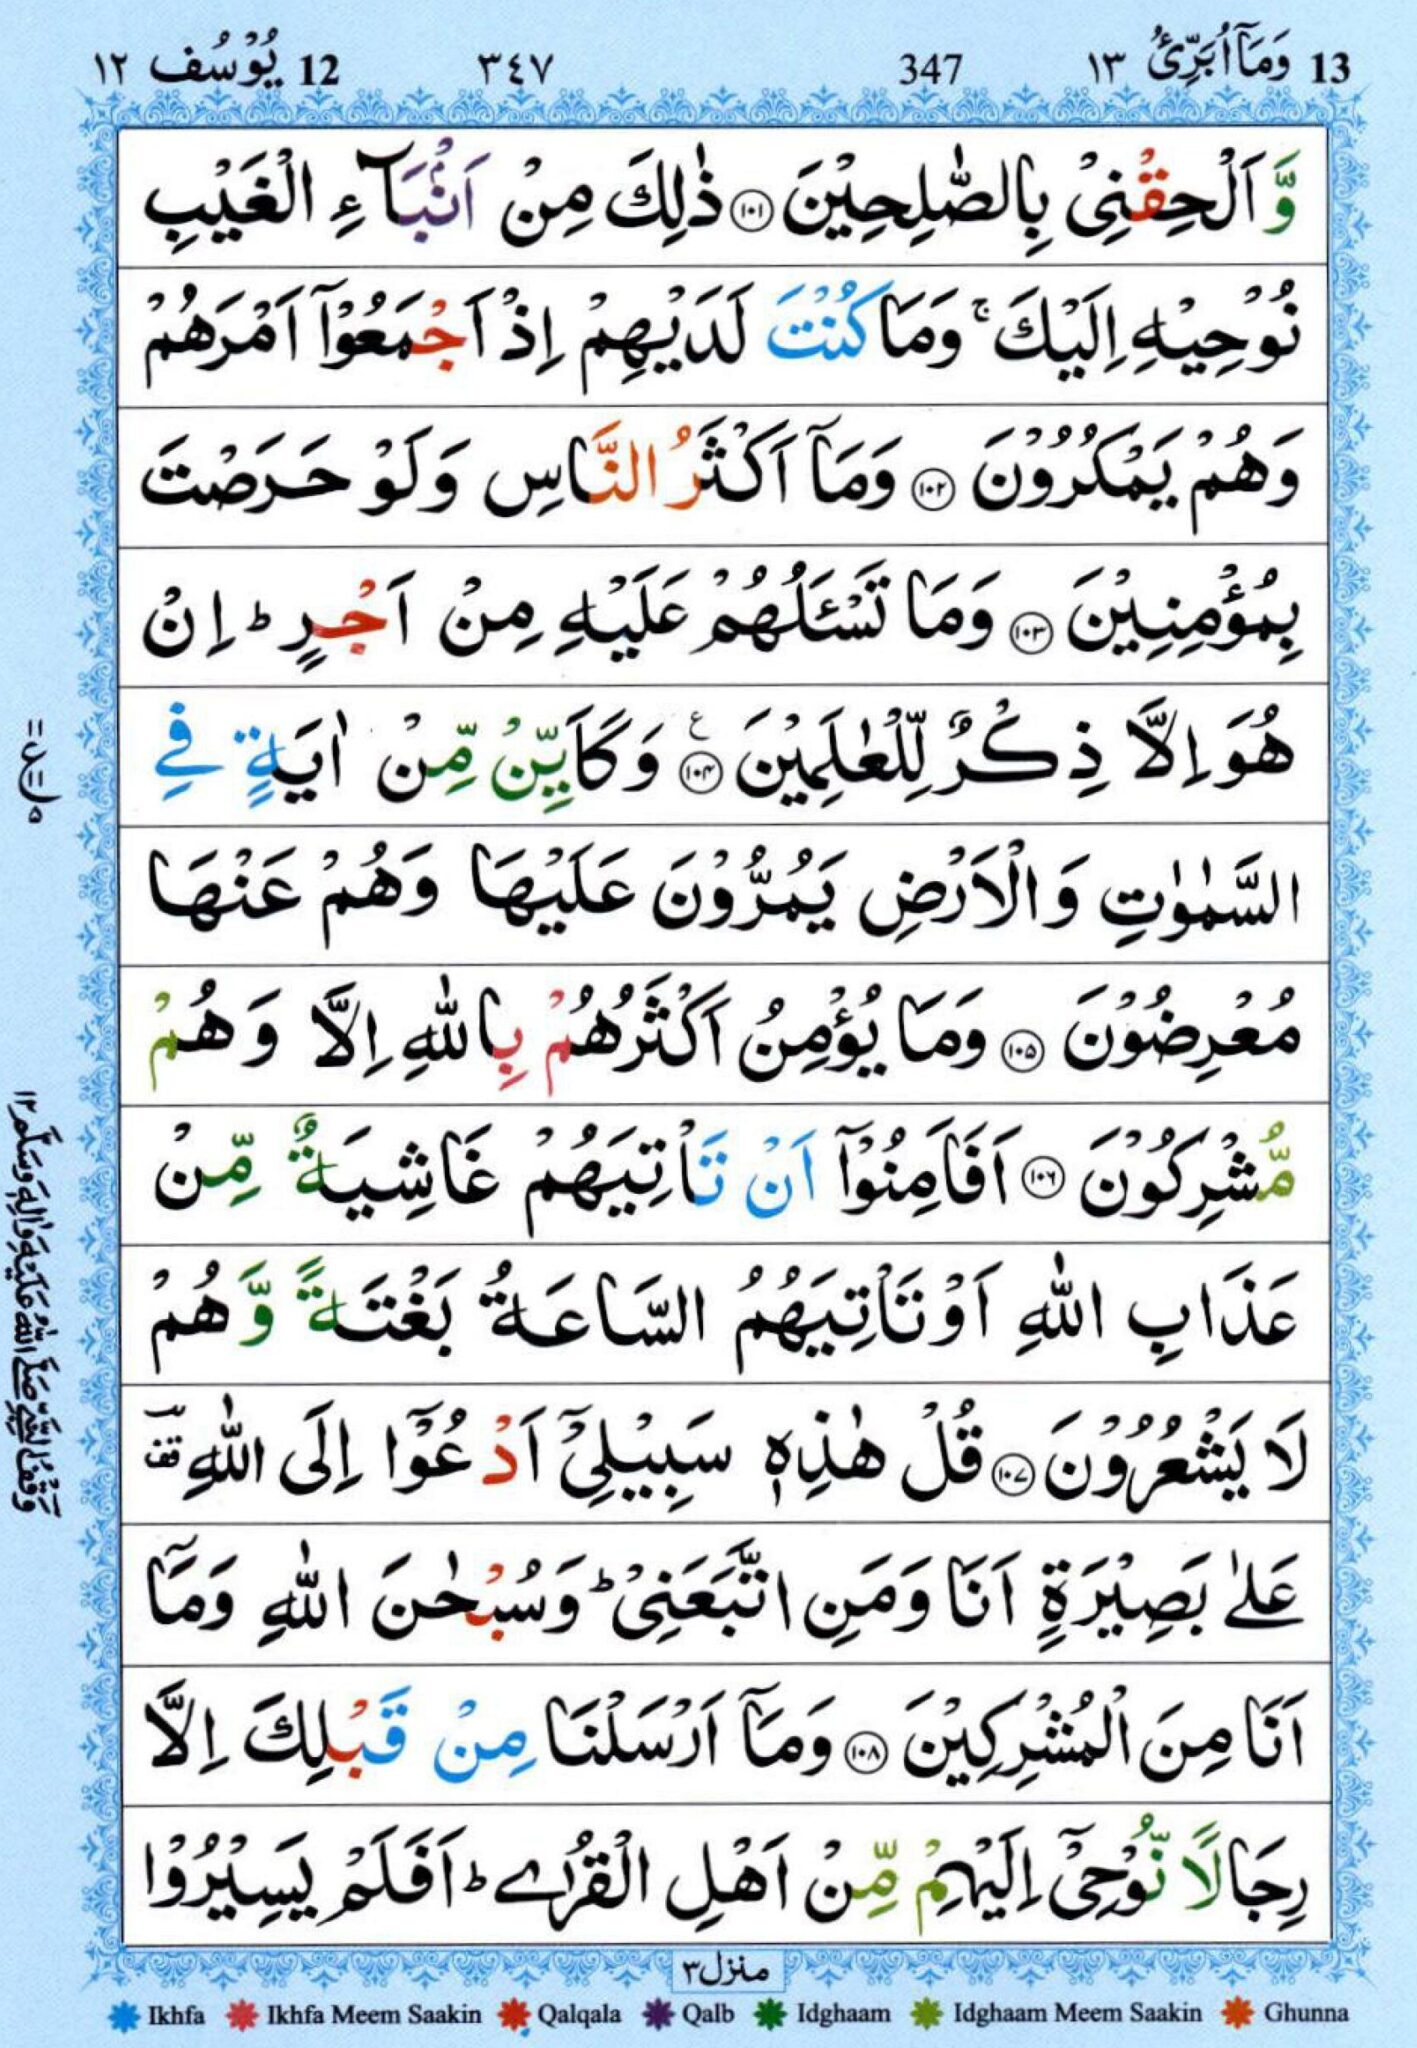 13 وَمَاۤ اُبَرِّئُ ١٣ 347 ٣٤٧ 12 يُوْسُف ١٢
وَّ اَلْحِقْنِیْ بِالصّٰلِحِیْنَ ﴿۱۰۱﴾ ذٰلِكَ مِنْ اَنْۢبَآءِ الْغَیْبِ
نُوْحِیْهِ اِلَیْكَ ۚ وَمَا كُنْتَ لَدَیْهِمْ اِذْ اَجْمَعُوْۤا اَمْرَهُمْ
وَهُمْ یَمْكُرُوْنَ ﴿۱۰۲﴾ وَمَاۤ اَكْثَرُ النَّاسِ وَلَوْ حَرَصْتَ
بِمُؤْمِنِیْنَ ﴿۱۰۳﴾ وَمَا تَسْـَٔلُهُمْ عَلَیْهِ مِنْ اَجْرٍ ؕ اِنْ
هُوَ اِلَّا ذِكْرٌ لِّلْعٰلَمِیْنَ ﴿۱۰۴﴾ ع وَكَاَیِّنْ مِّنْ اٰیَةٍ فِی
السَّمٰوٰتِ وَالْاَرْضِ یَمُرُّوْنَ عَلَیْهَا وَهُمْ عَنْهَا
مُعْرِضُوْنَ ﴿۱۰۵﴾ وَمَا یُؤْمِنُ اَكْثَرُهُمْ بِاللّٰهِ اِلَّا وَهُمْ
مُّشْرِكُوْنَ ﴿۱۰۶﴾ اَفَاَمِنُوْۤا اَنْ تَاْتِیَهُمْ غَاشِیَةٌ مِّنْ
عَذَابِ اللّٰهِ اَوْ تَاْتِیَهُمُ السَّاعَةُ بَغْتَةً وَّهُمْ
لَا یَشْعُرُوْنَ ﴿۱۰۷﴾ قُلْ هٰذِهٖ سَبِیْلِیْۤ اَدْعُوْۤا اِلَی اللّٰهِ ؔقف
عَلٰی بَصِیْرَةٍ اَنَا وَمَنِ اتَّبَعَنِیْ ؕ وَسُبْحٰنَ اللّٰهِ وَمَاۤ
اَنَا مِنَ الْمُشْرِكِیْنَ ﴿۱۰۸﴾ وَمَاۤ اَرْسَلْنَا مِنْ قَبْلِكَ اِلَّا
رِجَالًا نُّوْحِیْۤ اِلَیْهِمْ مِّنْ اَهْلِ الْقُرٰی ؕ اَفَلَمْ یَسِیْرُوْا
وَقْفُ النَّبِیِّ صَلَّی اللّٰهُ عَلَیْهِ وَاٰلِهٖ وَسَلَّم ۱۲
منزل ٣
Ikhfa Ikhfa Meem Saakin Qalqala Qalb Idghaam Idghaam Meem Saakin Ghunna